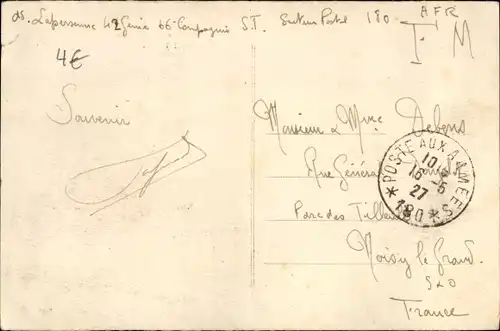 ds. Lapersonne 42 Génie 66e Compagnie S.T. Secteur Postal 180
AFR
F M
4€
Souvenir
Monsieur & Mme Debens
Rue Général
Parc des Tilleuls
Noisy le Grand
S&O
France
* POSTE AUX ARMEES *
10
16-5
27
180